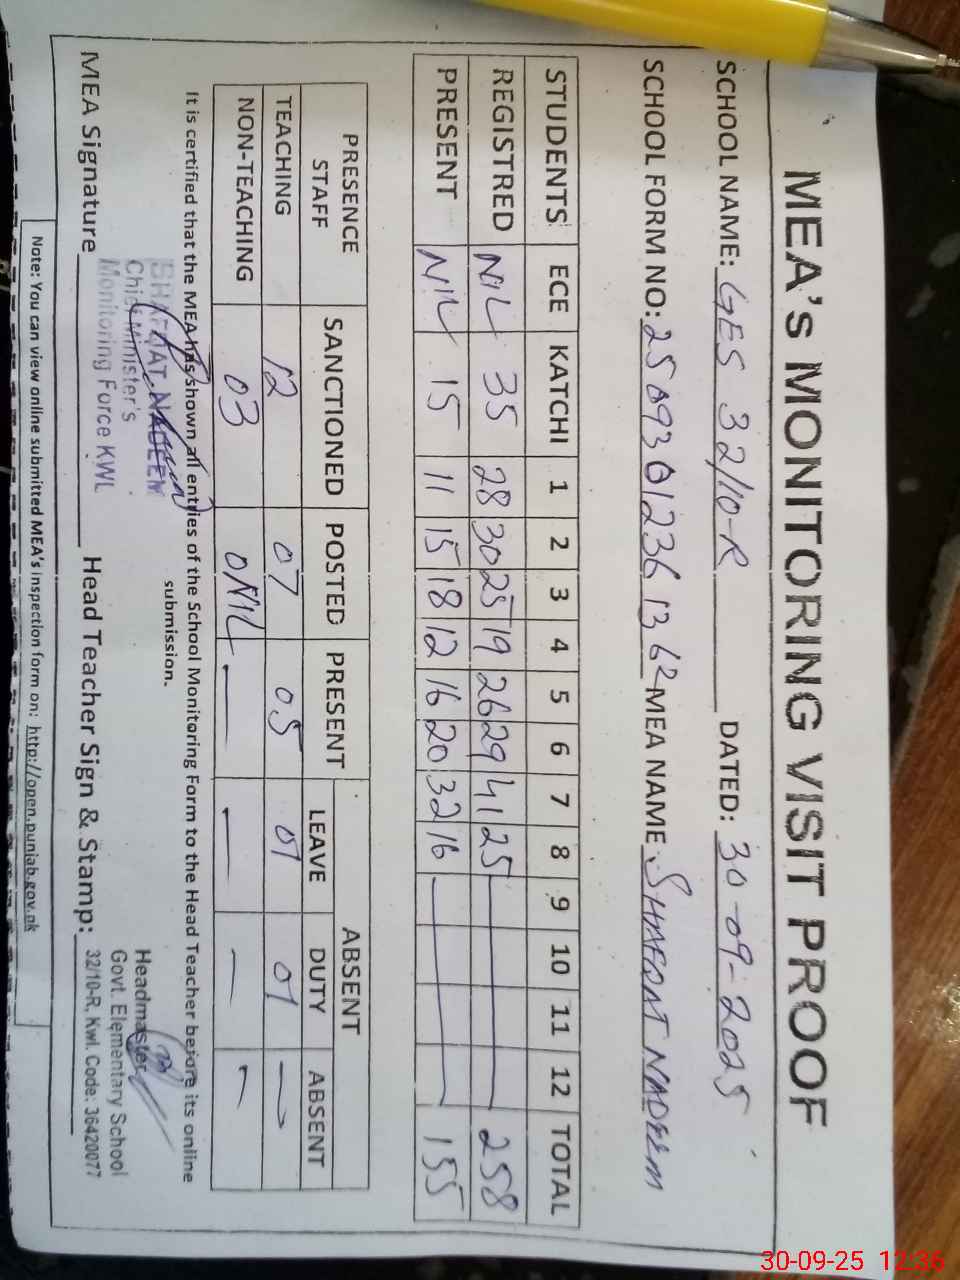 MEA's MONITORING VISIT PROOF
SCHOOL NAME: GES 32/10-R DATED: 30-09-2025
SCHOOL FORM NO: MEA NAME: SHAFQAT NADEEM
STUDENTS ECE KATCHI 1 2 3 4 5 6 7 8 9 10 11 12 TOTAL
REGISTRED NIL 35 28 30 25 19 26 29 41 25 258
PRESENT NIL 15 11 15 18 12 16 20 32 16 155
PRESENCE STAFF SANCTIONED POSTED PRESENT ABSENT
LEAVE DUTY ABSENT
TEACHING 12 07 05 01 01 —
NON-TEACHING 03 0NIL — — — —
It is certified that the MEA has shown all entries of the School Monitoring Form to the Head Teacher before its online
submission.
SHAFQAT NADEEM
Chief Minister's
Monitoring Force KWL
Headmaster
Govt. Elementary School
32/10-R, Kwl. Code: 36420077
MEA Signature Head Teacher Sign & Stamp:
Note: You can view online submitted MEA's inspection form on: http://open.punjab.gov.pk
30-09-25 12:36